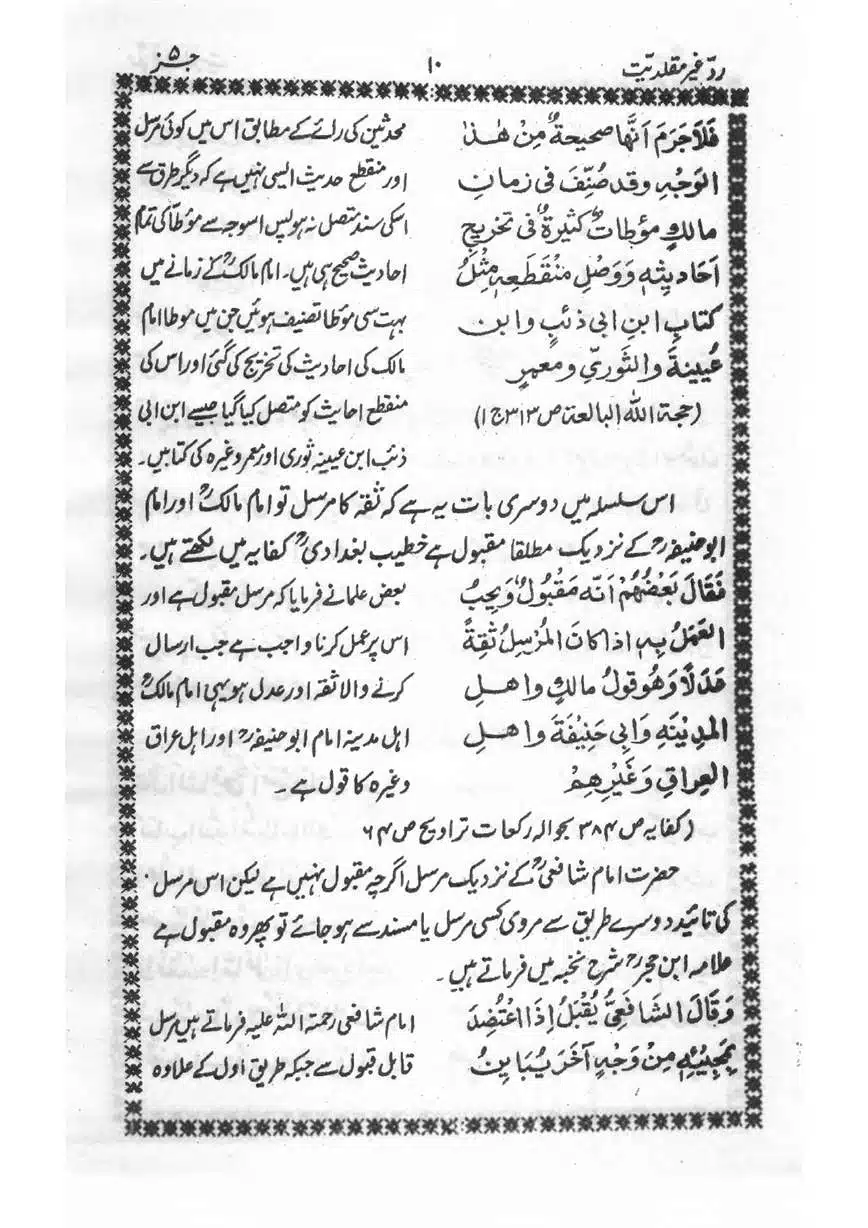 ردّ غیر مقلدیّت ۱۰ جز ۵
فَلَاجَرَمَ اَنَّهَا صحیحةٌ مِنْ هٰذَا محدثین کی رائے کے مطابق اس میں کوئی مرسل
الوَجْهِ وقد صُنِّفَ فی زمانِ اور منقطع حدیث ایسی نہیں ہے کہ دیگر طرق سے
مالكٍ مؤطات کثیرةٌ فی تخریجِ اسکی سند متصل نہ ہو پس اسوجہ سے مؤطا کی تمام
اَحَادیثِهٖ وَوَصْلِ مُنْقَطَعِهٖ مِثْلُ احادیث صحیح ہی ہیں۔ امام مالکؒ کے زمانے میں
کتابِ ابنِ ابی ذئبٍ وابن بہت سی مؤطا تصنیف ہوئیں جن میں موطا امام
عُیینةَ والثوریِّ ومعمرٍ مالک کی احادیث کی تخریج کی گئی اور اس کی
(حجة الله البالعة ص ۳۱۳ ج ۱) منقطع احایث کو متصل کیا گیا جیسے ابن ابی
ذئب ابن عیینہ ثوری اور معمر وغیرہ کی کتابیں۔
اس سلسلہ میں دوسری بات یہ ہے کہ ثقہ کا مرسل تو امام مالکؒ اور امام
ابوحنیفہؒ کے نزدیک مطلقا مقبول ہے خطیب بغدادیؒ کفایہ میں لکھتے ہیں۔
فَقَالَ بَعْضُهُمْ اَنّه مَقْبُولٌ وَیجِبُ بعض علمانے فرمایا کہ مرسل مقبول ہے اور
العَمَلُ بِهٖ اذا کانَ المُرْسِلُ ثِقَةً اس پر عمل کرنا واجب ہے جب ارسال
عَدَلًا وَهُوَ قولُ مالكٍ واهلِ کرنے والا ثقہ اور عدل ہو یہی امام مالکؒ
المدِیْنَةِ وَابی حَنِیْفَةَ واهلِ اہل مدینہ امام ابوحنیفہؒ اور اہل عراق
العراقِ وَغَیْرِهِمْ وغیرہ کا قول ہے۔
(کفایہ ص ۳۸۴ بحوالہ رکعات تراویح ص ۶۴)
حضرت امام شافعیؒ کے نزدیک مرسل اگرچہ مقبول نہیں ہے لیکن اس مرسل
کی تائید دوسرے طریق سے مروی کسی مرسل یا مسند سے ہو جائے تو پھر وہ مقبول ہے
علامہ ابن حجرؒ شرح نخبہ میں فرماتے ہیں۔
وَقَالَ الشَافعیُّ یُقْبَلُ اِذَا اعْتُضِدَ امام شافعی رحمتہ اللہ علیہ فرماتے ہیں مرسل
بِمَجِیْئِهٖ مِنْ وَجْهٍ آخَرَ یُبَایِنُ قابل قبول سے جبکہ طریق اول کے علاوہ